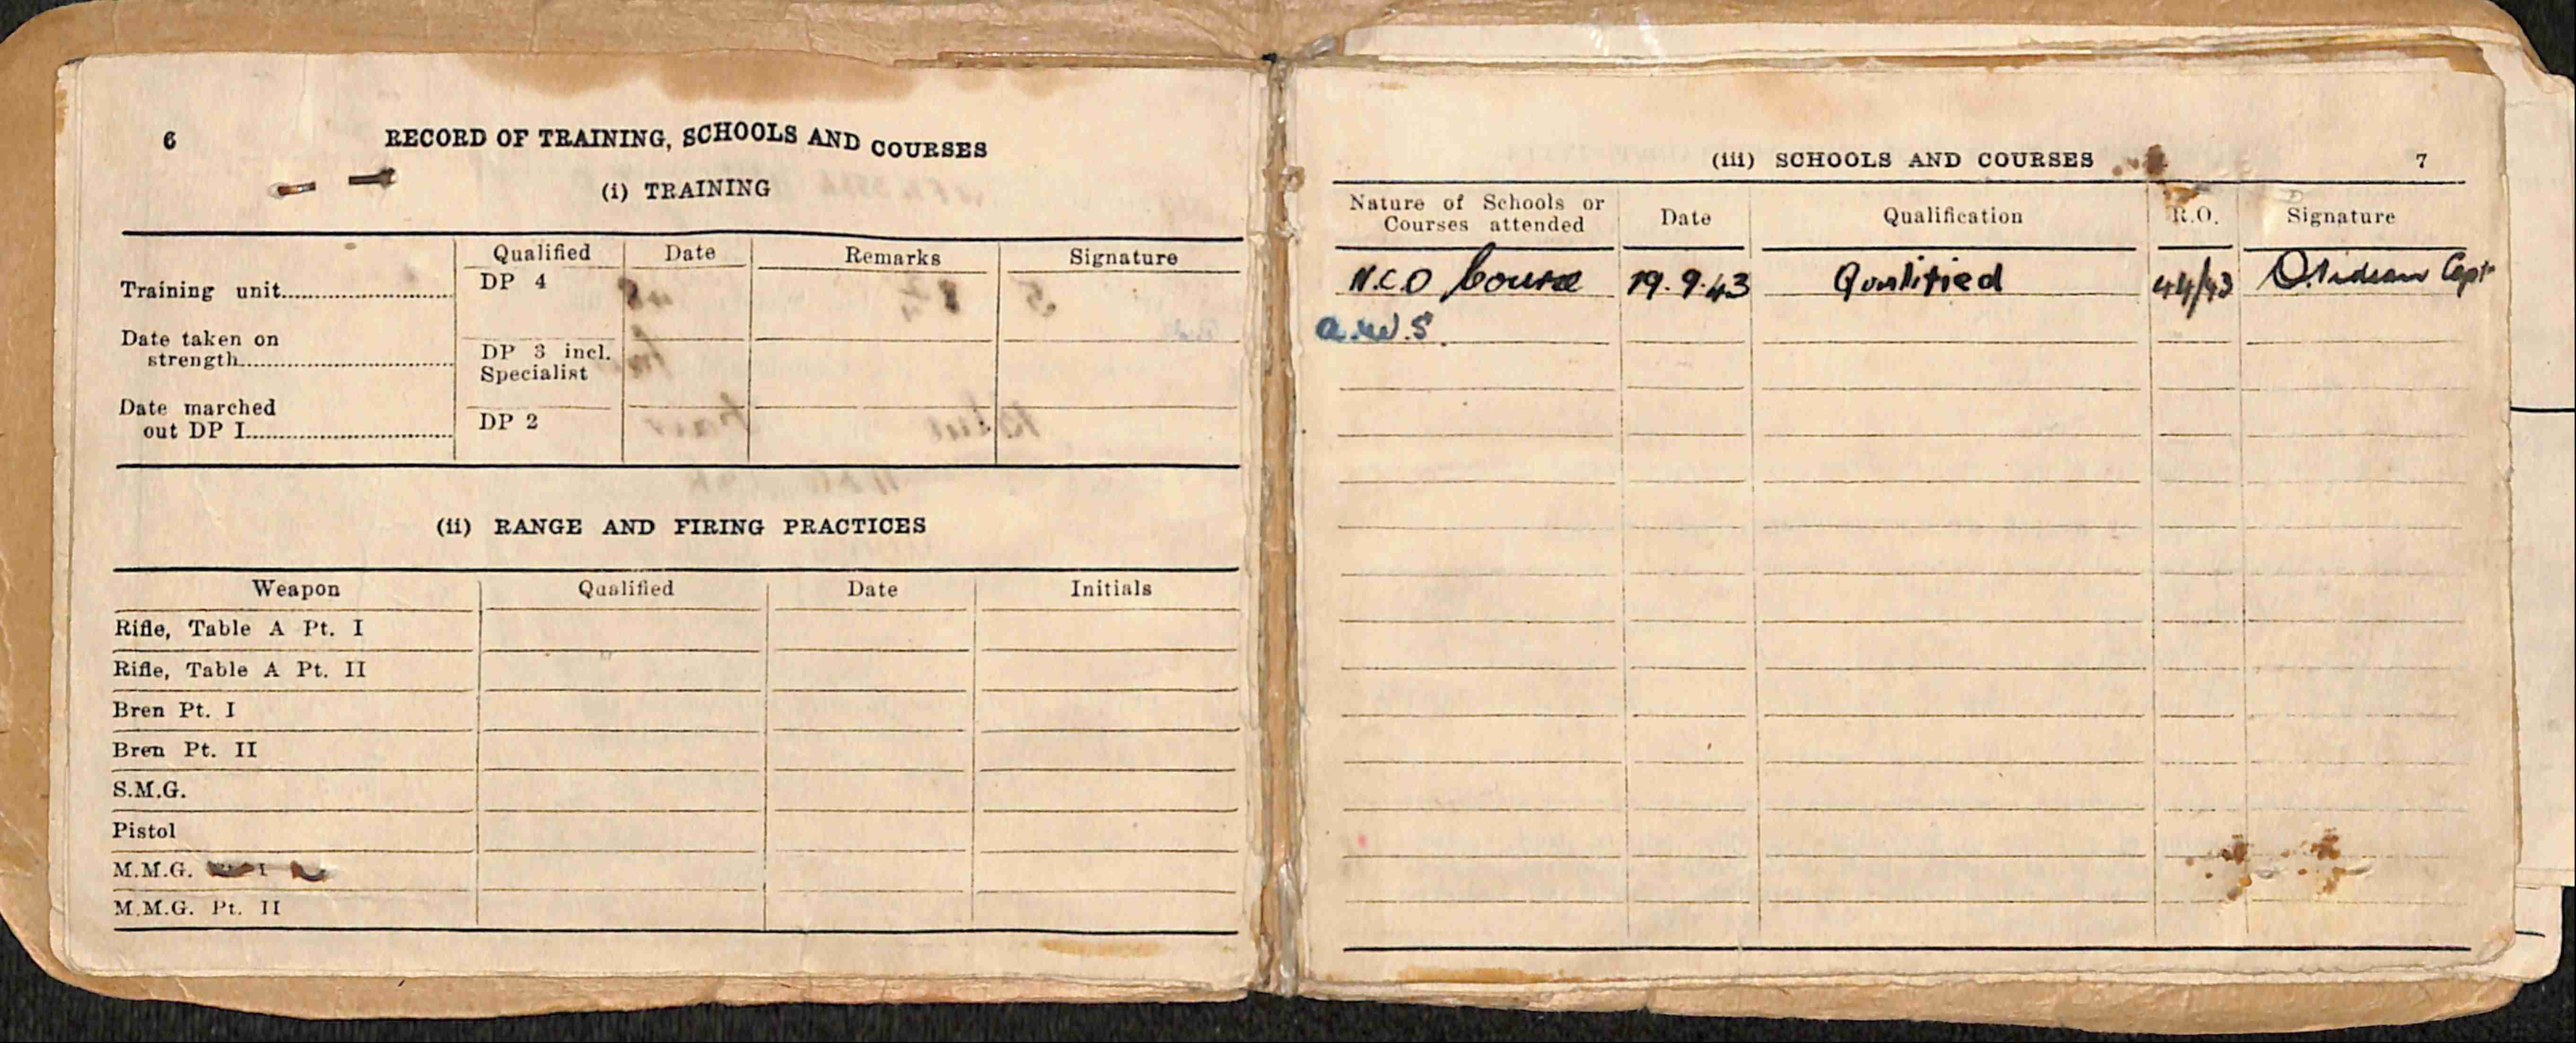 6
RECORD OF TRAINING, SCHOOLS AND COURSES
(i) TRAINING
Qualified Date Remarks Signature
Training unit.......... DP 4
Date taken on
strength.......... DP 3 incl.
Specialist
Date marched
out DP I.......... DP 2
(ii) RANGE AND FIRING PRACTICES
Weapon Qualified Date Initials
Rifle, Table A Pt. I
Rifle, Table A Pt. II
Bren Pt. I
Bren Pt. II
S.M.G.
Pistol
M.M.G. I
M.M.G. Pt. II
(iii) SCHOOLS AND COURSES 7
Nature of Schools or
Courses attended Date Qualification R.O. Signature
N.C.O Course 19.9.43 Qualified 44/43 Capt
a.w.S.